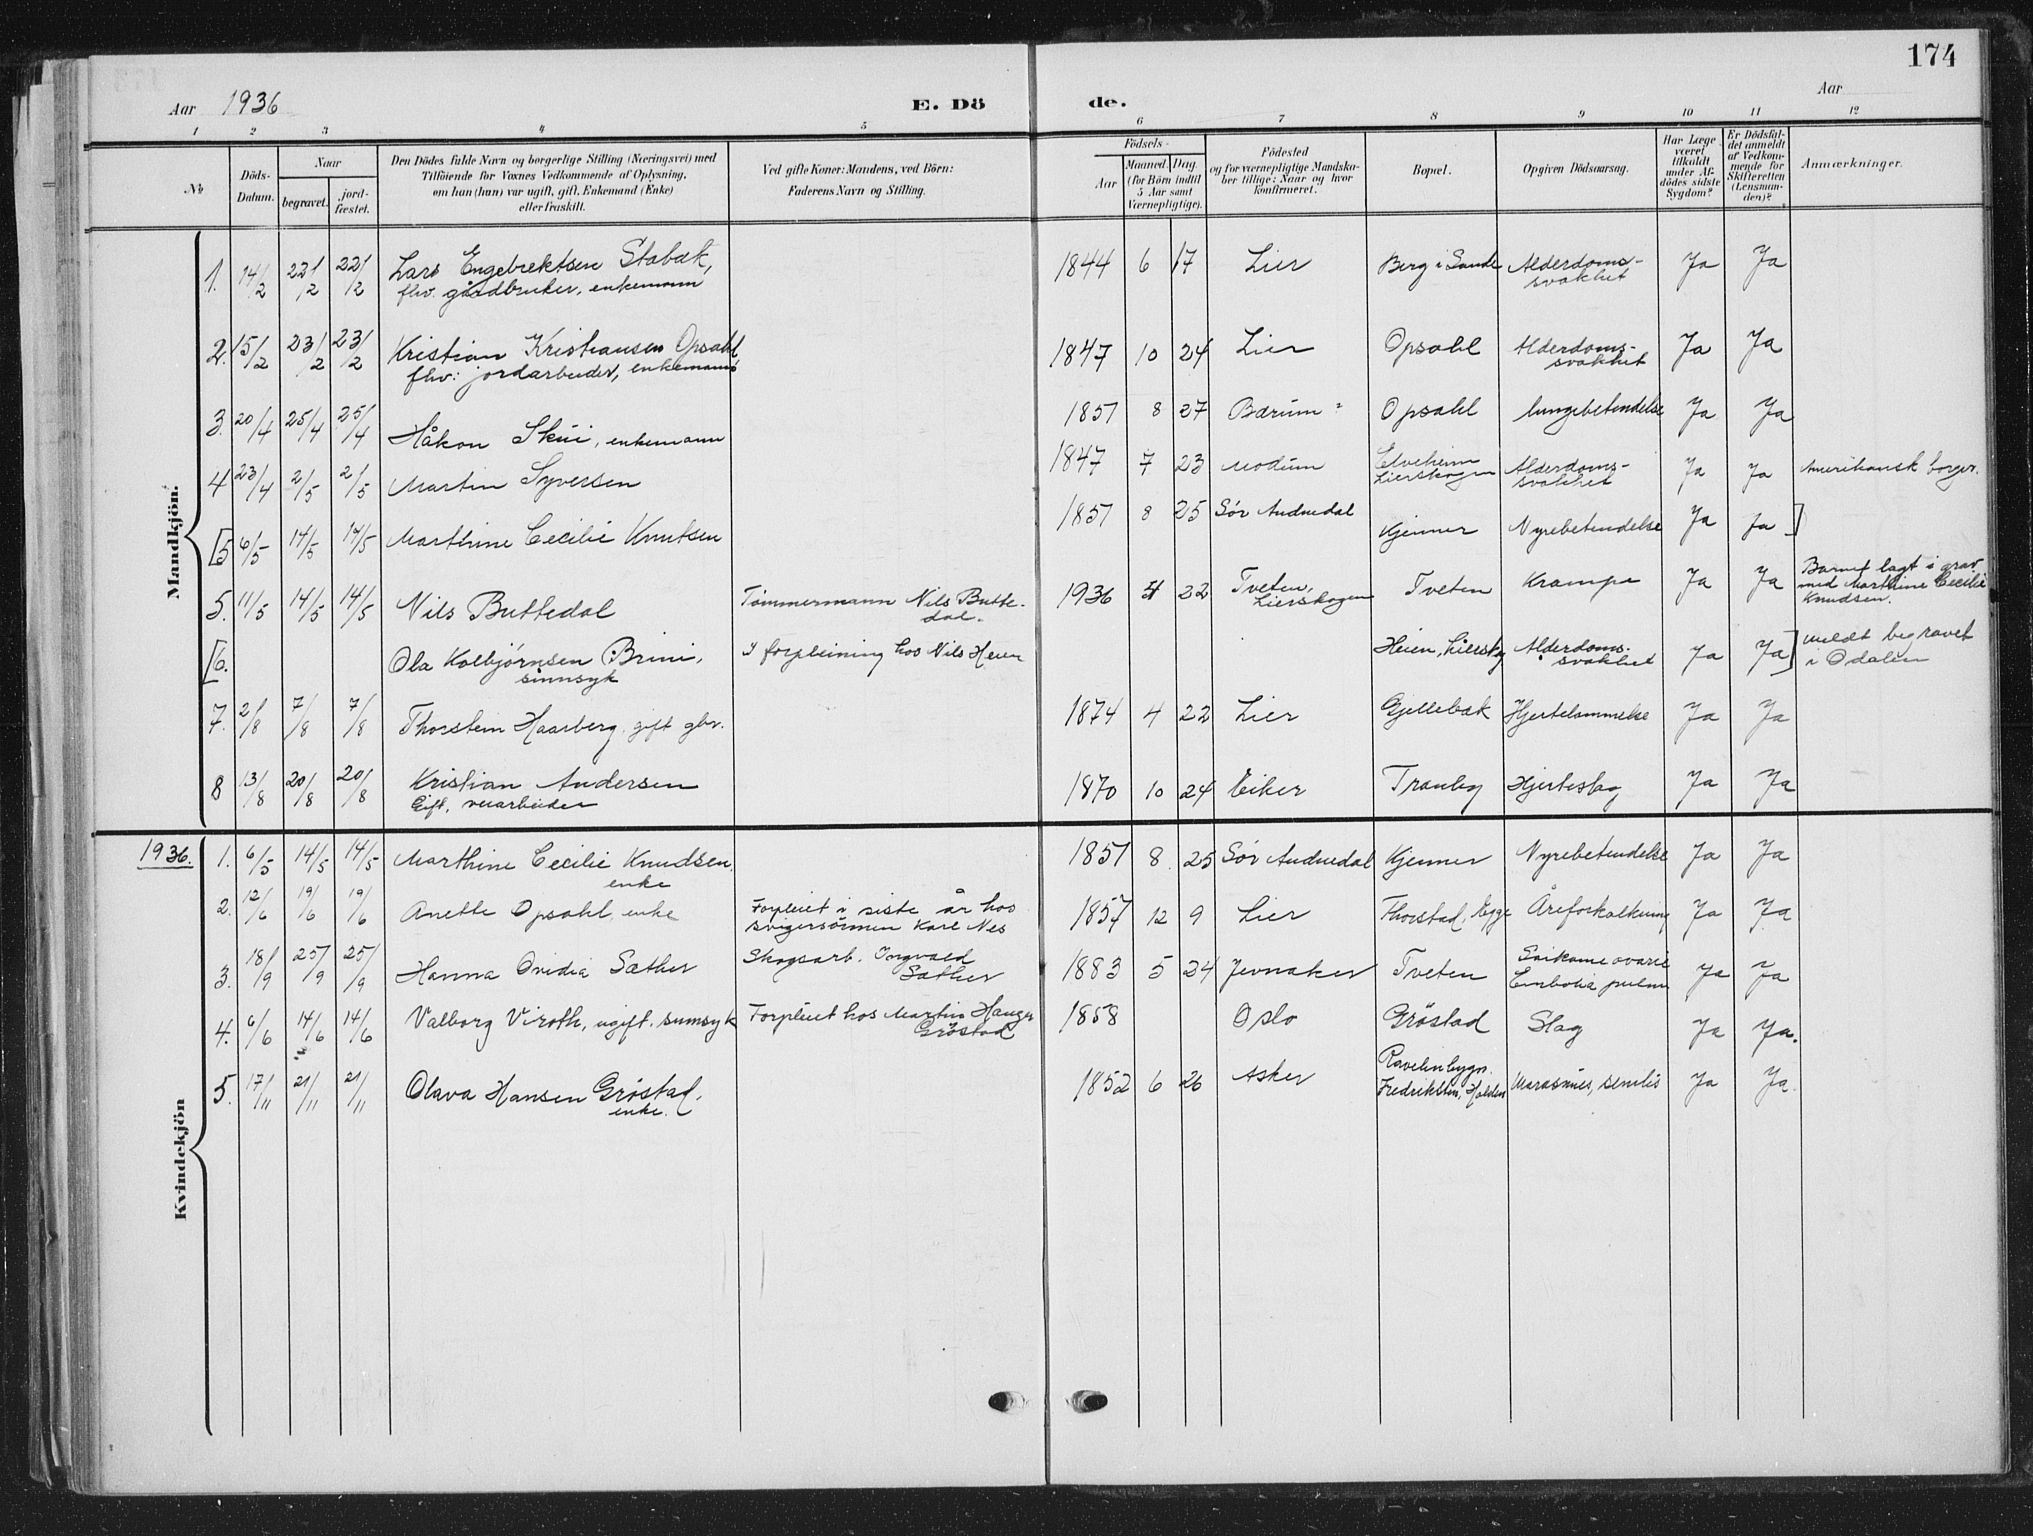 174
Aar 1936
E. Dö de.
Aar
1 2 3 4 5 6 7 8 9 10 11 12
No
Döds-Datum.
Naar
begravet.
jord-fæstet.
Den Dödes fulde Navn og borgerlige Stilling (Næringsvei) med
Tilföiende for Voxnes Vedkommende af Oplysning,
om han (hun) var ugift, gift, Enkemand (Enke)
eller fraskilt.
Ved gifte Koner: Mandens, ved Börn:
Faderens Navn og Stilling.
Födsels-
Aar
Maaned Dag
(for Börn indtil
5 Aar samt
Værnepligtige).
Födested
og for værnepligtige Mandska-
ber tillige: Naar og hvor
konfirmeret.
Bopæl.
Opgiven Dödsaarsag.
Har Læge
været
tilkaldt
under Af-
dödes sidste
Sygdom?
Er Dödsfal-
det anmeldt
af Vedkom-
mende for
Skifteretten
(Lensman-
den)?
Anmærkninger.
Mandkjön.
1. 14/2 22/2 22/2 Lars Engebrektsen Stabæk, 1844 6 17 Lier Berg i Sande Alderdoms- Ja Ja
flv. gårdbruker, enkemann svakhet
2. 15/2 23/2 23/2 Kristian Kristiansen Opsahl 1847 10 24 Lier Opsahl Alderdoms- Ja Ja
fhv: jordarbeider, enkemann svakhet
3. 20/4 25/4 25/4 Håkon Skui, enkemann 1857 8 27 Bærum Opsahl lungebetendelse Ja Ja
4 23/4 2/5 2/5 Martin Syversen 1847 7 23 Modum Elveheim Alderdoms- Ja Ja Amerikansk borger.
Lierskogen svakhet
[5 6/5 14/5 14/5 Marthine Cecilie Knutsen 1851 8 25 Sør Audnedal Kjenner Nyrebetendelse Ja Ja ]
5. 11/5 14/5 14/5 Nils Buttedal Tømmermann Nils Butte- 1936 4 22 Tveten, Tveten Krampe Ja Ja Barnet lagt i grav
dal. Lierskogen med Marthine Cecilie
Knudsen.
[6. Ola Kolbjørnsen Brini, I forpleining hos Nils Heien Heien, Lierskog Alderdoms- Ja Ja] meldt begravet
sinnsyk svakhet i Odalen
7. 2/8 7/8 7/8 Thorstein Haarberg, gift gbr. 1874 4 22 Lier Gjellebæk Hjertelammelse Ja Ja
8 13/8 20/8 20/8 Kristian Andersen 1870 10 24 Eiker Tranby Hjerteslag Ja Ja
Gift, veiarbeider
1936.
Kvindekjön
1. 6/5 14/5 14/5 Marthine Cecilie Knudsen, 1851 8 25 Sør Audnedal Kjenner Nyrebetendelse Ja Ja
enke
2. 12/6 19/6 19/6 Anette Opsahl, enke Forpleiet i siste år hos 1857 12 9 Lier Thorstad, Egge Åreforkalkning Ja Ja
svigersønnen Karl Nes
3. 18/9 25/9 25/9 Hanna Ovidia Sæther Skogsarb. Ingvald 1883 5 24 Jevnaker Tveten Sarkome ovarie Ja Ja
Sæther Embolia pulm
4. 6/6 14/6 14/6 Valborg Viroth, ugift. sinnsyk Forpleiet hos Martin Hauger 1858 Oslo Grøstad Slag Ja Ja.
Grøstad
5. 17/11 21/11 21/11 Olava Hansen Grøstad, 1852 6 26 Asker Ravelinbygn. Marasmus, senilis Ja Ja.
enke. Fredriksten, Halden